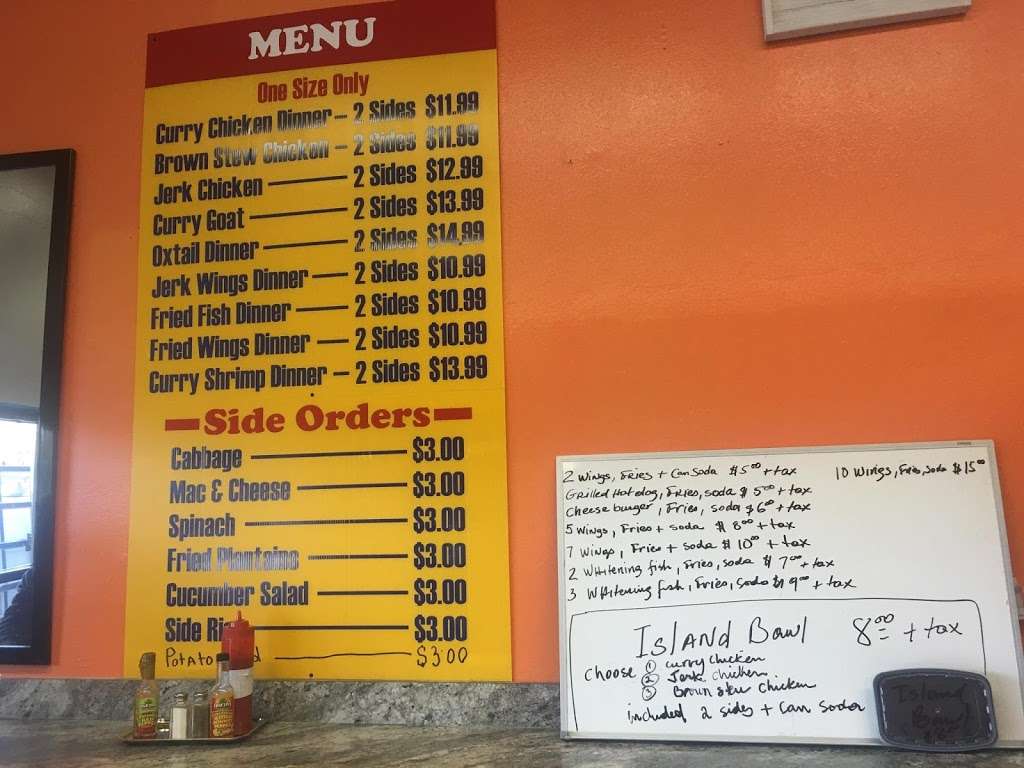 MENU
One Size Only
Curry Chicken Dinner — 2 Sides $11.99
Brown Stew Chicken — 2 Sides $11.99
Jerk Chicken — 2 Sides $12.99
Curry Goat — 2 Sides $13.99
Oxtail Dinner — 2 Sides $14.99
Jerk Wings Dinner — 2 Sides $10.99
Fried Fish Dinner — 2 Sides $10.99
Fried Wings Dinner — 2 Sides $10.99
Curry Shrimp Dinner — 2 Sides $13.99
Side Orders
Cabbage — $3.00
Mac & Cheese — $3.00
Spinach — $3.00
Fried Plantains — $3.00
Cucumber Salad — $3.00
Side — $3.00
Potato — $3.00
2 Wings, Fries + Can Soda $5.00 + tax
Grilled Hotdog, Fries, soda $5.00 + tax
Cheese burger, Fries, soda $6.00 + tax
5 Wings, Fries + soda $8.00 + tax
7 Wings, Fries + soda $10.00 + tax
2 Whitening fish, Fries, soda $7.00 + tax
3 Whitening fish, Fries, soda $9.00 + tax
10 Wings, Fries, Soda $15.00
Island Bowl 8.00 + tax
Choose ① curry chicken
② Jerk chicken
③ Brown stew chicken
included 2 sides + Can Soda
Island
Bowl